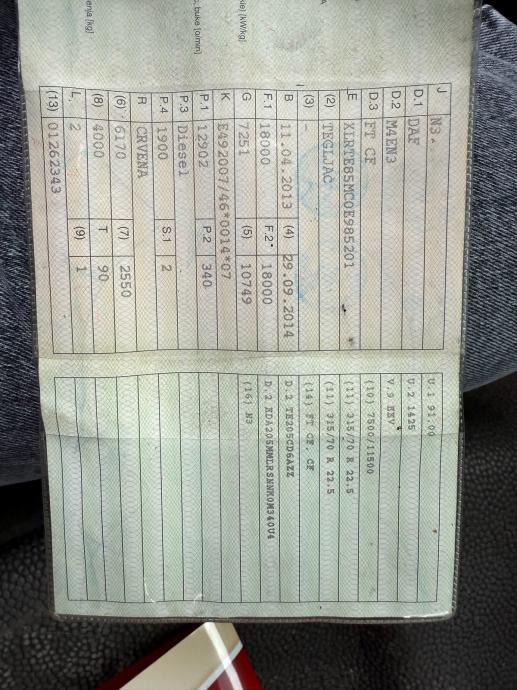 J N3
D.1 DAF
D.2 M4EN3
D.3 FT CF
E XLRTE85MC0E985201
(2) TEGLJAČ
(3) -
B 11.04.2013 (4) 29.09.2014
F.1 18000 F.2 18000
G 7251 (5) 10749
K E492007/46*0014*07
P.1 12902 P.2 340
P.3 Diesel
P.4 1900 S.1 2
R CRVENA
(6) 6170 (7) 2550
(8) 4000 T 90
L 2 (9) 1
(13) 01262343
U.1 91.00
U.2 1425
V.9 EEV
(10) 7500/11500
(11) 315/70 R 22.5
(11) 315/70 R 22.5
(14) FT CF. CF
D.2 TE205CD6AZZ
D.2 EDA205MMLRSNNK0M340U4
(16) N3
kle) [kW/kg]
, buke [o/min]
enja [kg]